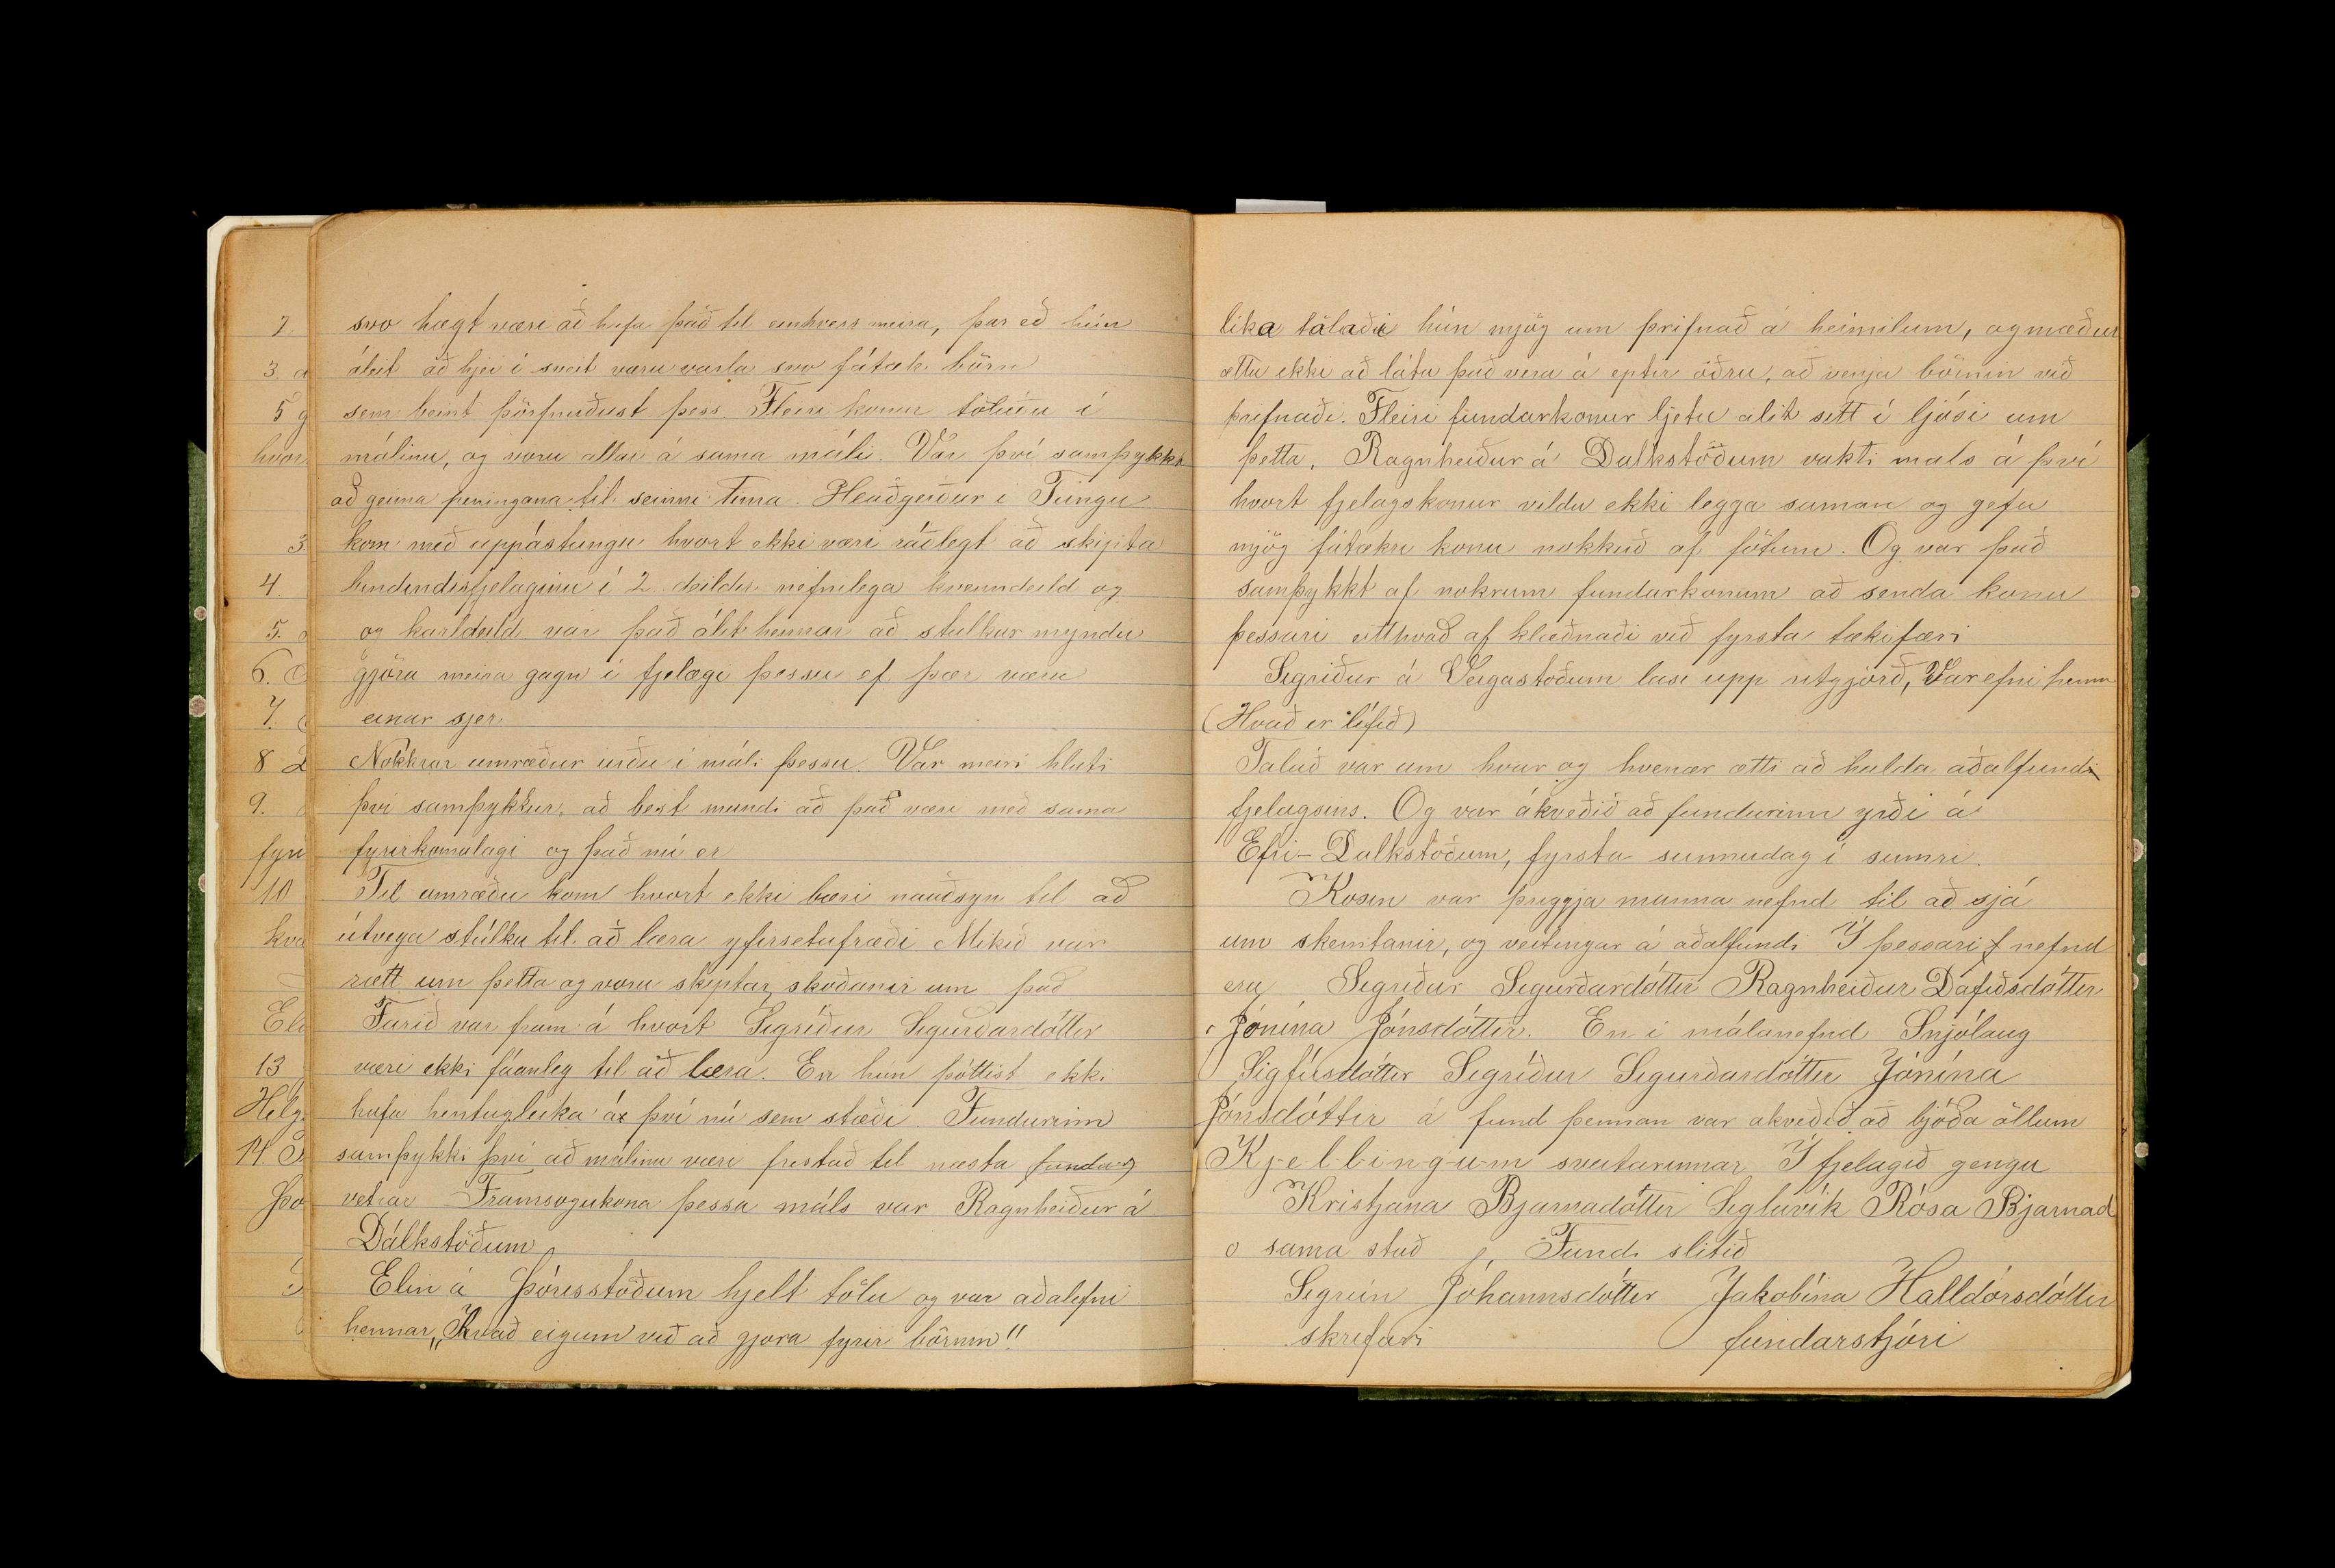 svo hægt væri að hafa það til einhvers meira, þar eð hún
áleit að hjer í sveit væru varla svo fátæk börn
sem beint þörfnuðust þess. Fleiri konur töluðu í
málinu, og voru allar á sama máli. Var því samþykkt
að geima peningana til seinni tíma. Heiðgeirður í Tungu
kom með uppástungu hvort ekki væri ráðlegt að skipta
bindindisfjelaginu í 2 deildir nefnilega kvenndeild og
og karldeild var það álit hennar að stúlkur myndu
gjöra meira gagn í fjelagi þessu ef þær væru
einar sjer.
Nokkrar umræður urðu í máli þessu. Var meiri hluti
því samþykkur, að best mundi að það væri með sama
fyrirkomulagi og það nú er
Til umræðu kom hvort ekki bæri nauðsyn til að
útvega stúlku til að læra yfirsetufræði. Mikið var
rætt um þetta og voru skiptar skoðanir um það
Farið var fram á hvort Sigríður Sigurðardóttir
væri ekki fáanleg til að læra. En hún þóttist ekki
hafa hentugleika á því nú sem stæði. Fundurinn
samþykki því að málinu væri frestað til næsta
vetrar Framsogukona þessa máls var Ragnheiður á
Dálkstöðum
Elin á Þórisstöðum hjelt tölu og var aðalefni
hennar, „Hvað eigum við að gjora fyrir börnin"
lika talaði hún mjög um þrifnað á heimilum, og mæður
ættu ekki að láta það vera á eptir öðru, að venja börnin við
þrifnaði. Fleiri fundarkonur ljetu álit sitt í ljósi um
þetta. Ragnheiður á Dalkstöðum vakti mals á því
hvort fjelagskonur vildu ekki leggja saman og gefa
mjög fátækri konu nokkuð af fötum. Og var það
samþykkt af nokrum fundarkonum að senda konu
þessari eitthvað af klæðnaði við fyrsta tækifæri
Sigriður á Veigastöðum las upp ritgjörð, Var efni henn
(Hvað er lífið)
Talað var um hvar og hvenær ætti að halda aðalfund
fjelagsins. Og var ákveðið að fundurinn yrði á
Efri-Dalkstöðum, fyrsta sunnudag í sumri.
Kosin var þriggja manna nefnd til að sjá
um skemtanir, og veitingar á aðalfundi Í þessari nefnd
eru Sigriður Sigurðardóttir Ragnheiður Dafiðsdóttir
Jónína Jónsdóttir. En i málanefnd Snjólaug
Sigfúsdóttir Sigríður Sigurðardóttir Jónína
Jónsdóttir á fund þennan var akveðið að bjóða öllum
Kj-e-l-l-i-n-g-u-m sveitarinnar Í fjelagið gengu
Kristjana Bjarnadóttir Sigluvík Rósa Bjarnad
sama stað Fundi slitið
Sigrún Jóhannsdóttir Jakobína Halldórsdóttir
skrifari fundarstjóri